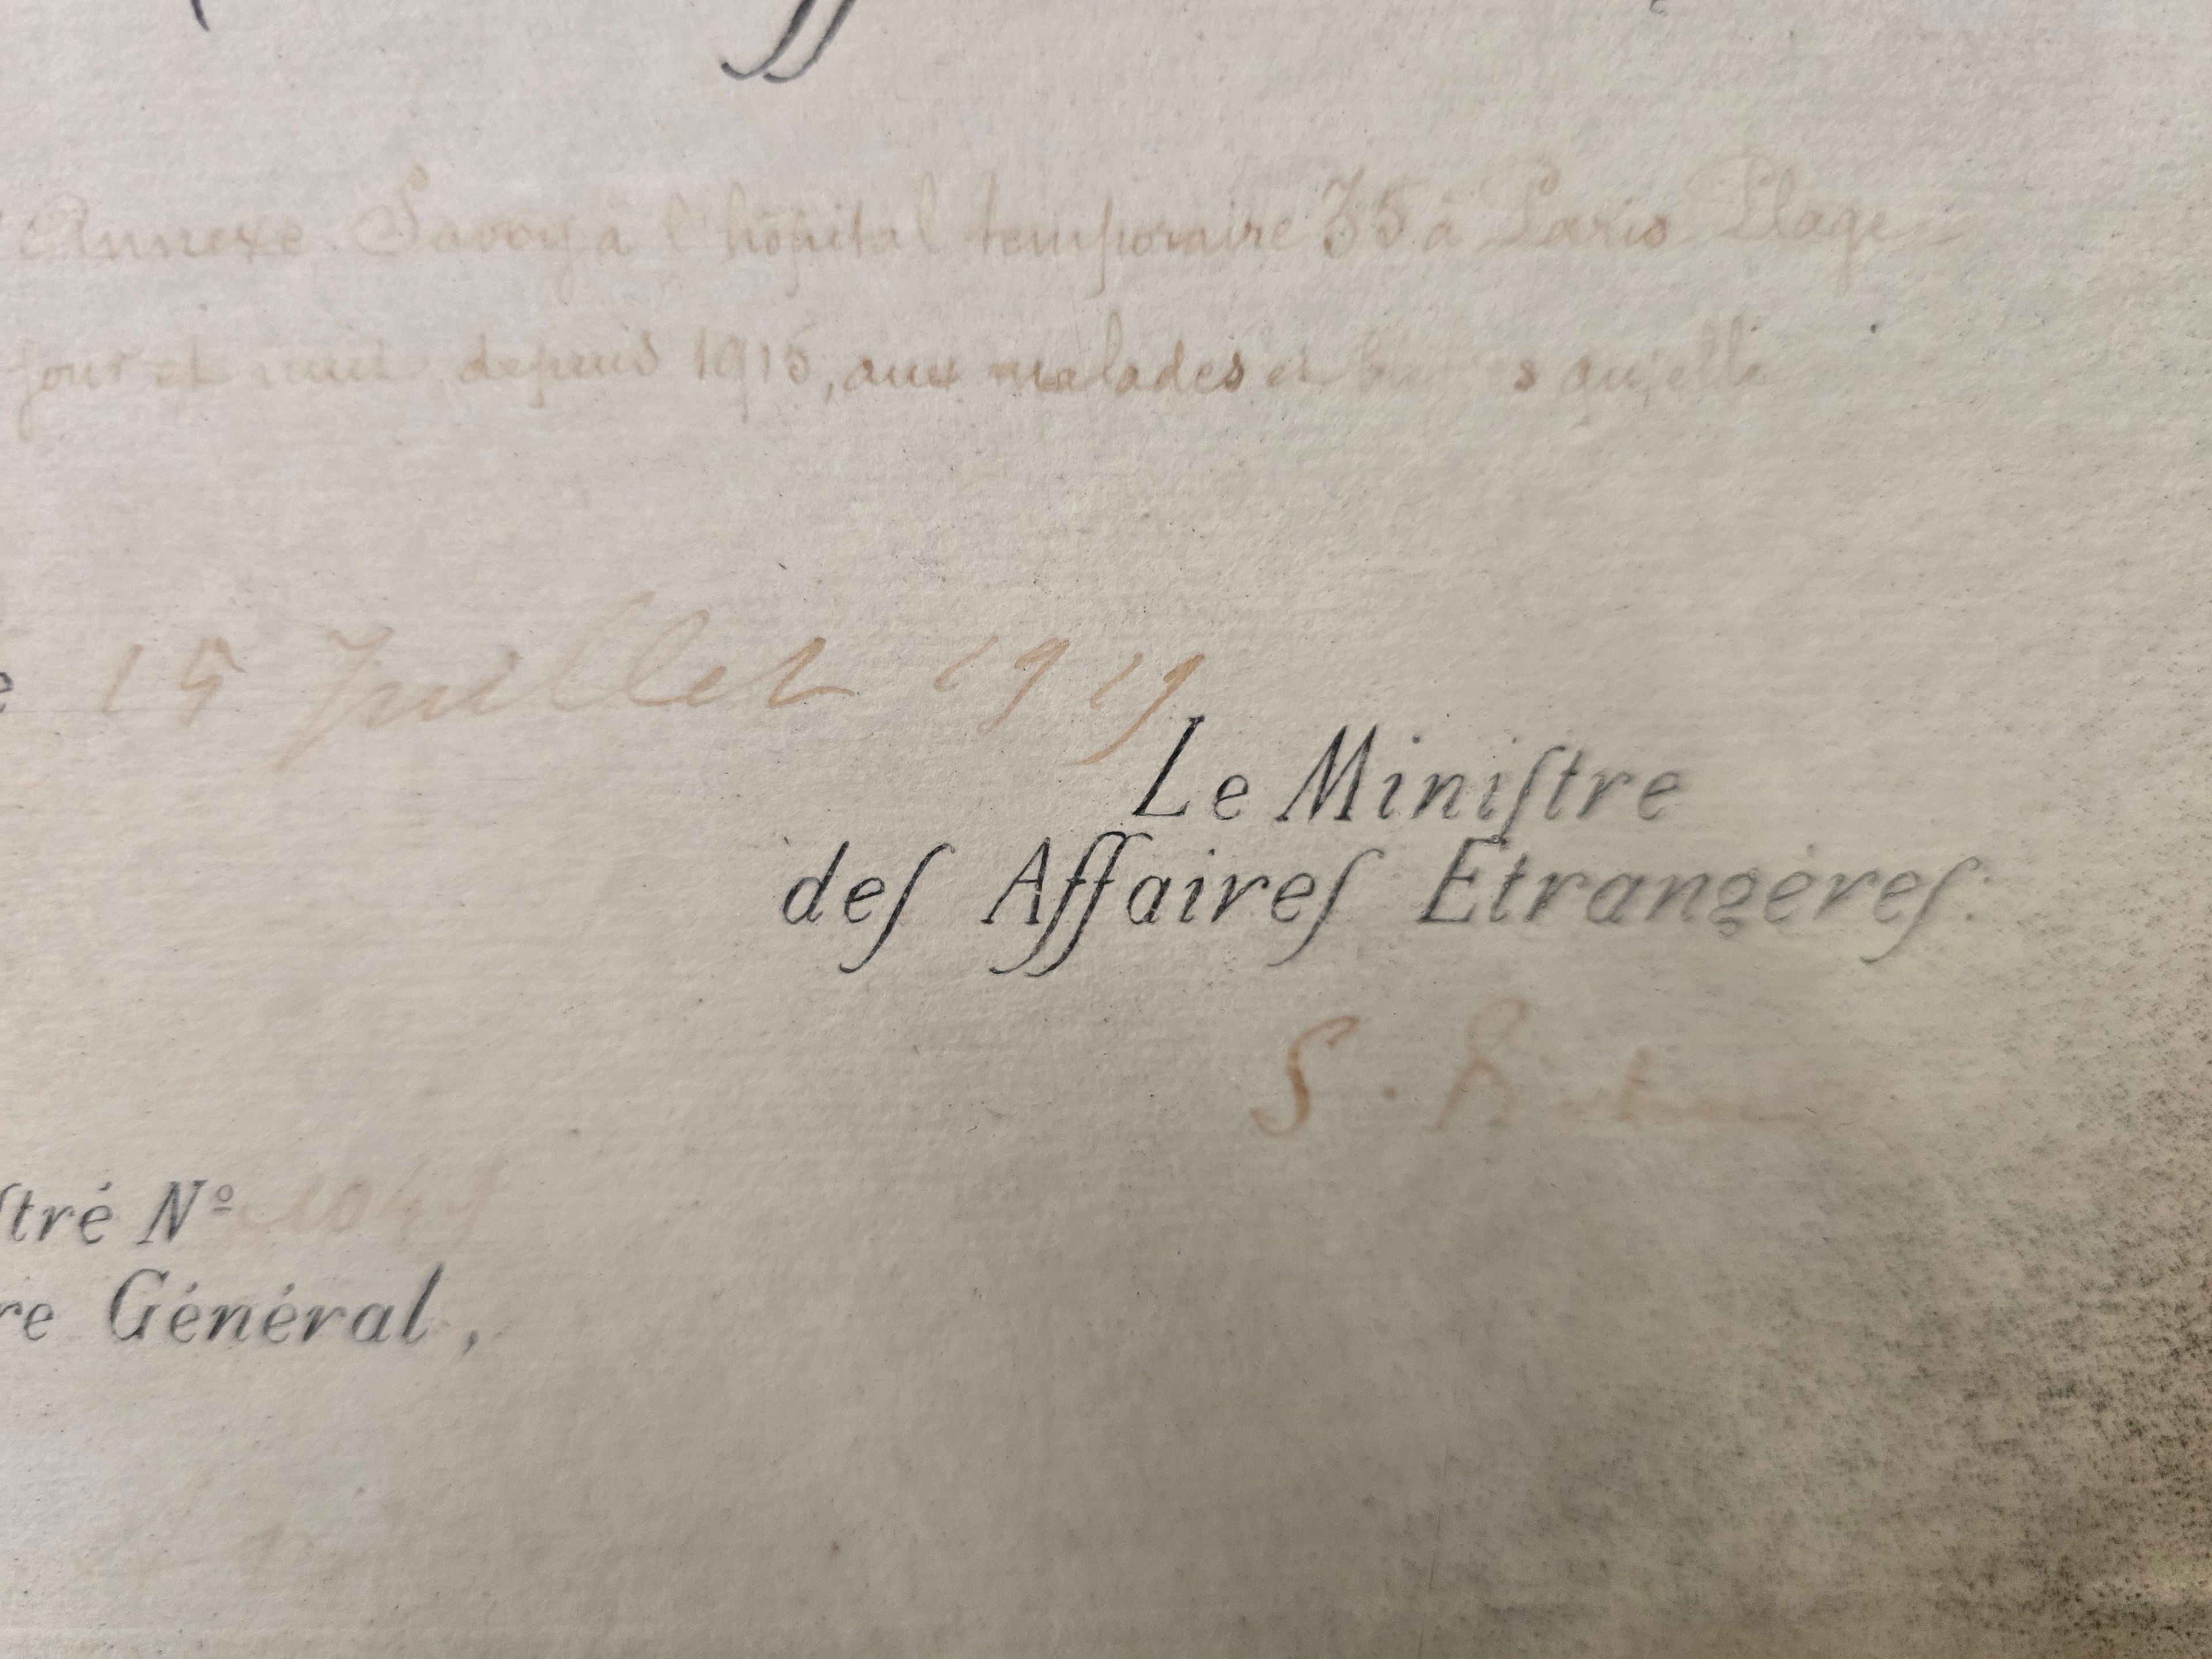 Annexe Savoy à l'hôpital temporaire 35 à Paris Plage
jour et nuit, depuis 1915, aux malades et s qu'elle
15 Juillet 1919
Le Miniſtre
deſ Affaireſ Etrangèreſ:
S.
ſtré Nº
re Général,